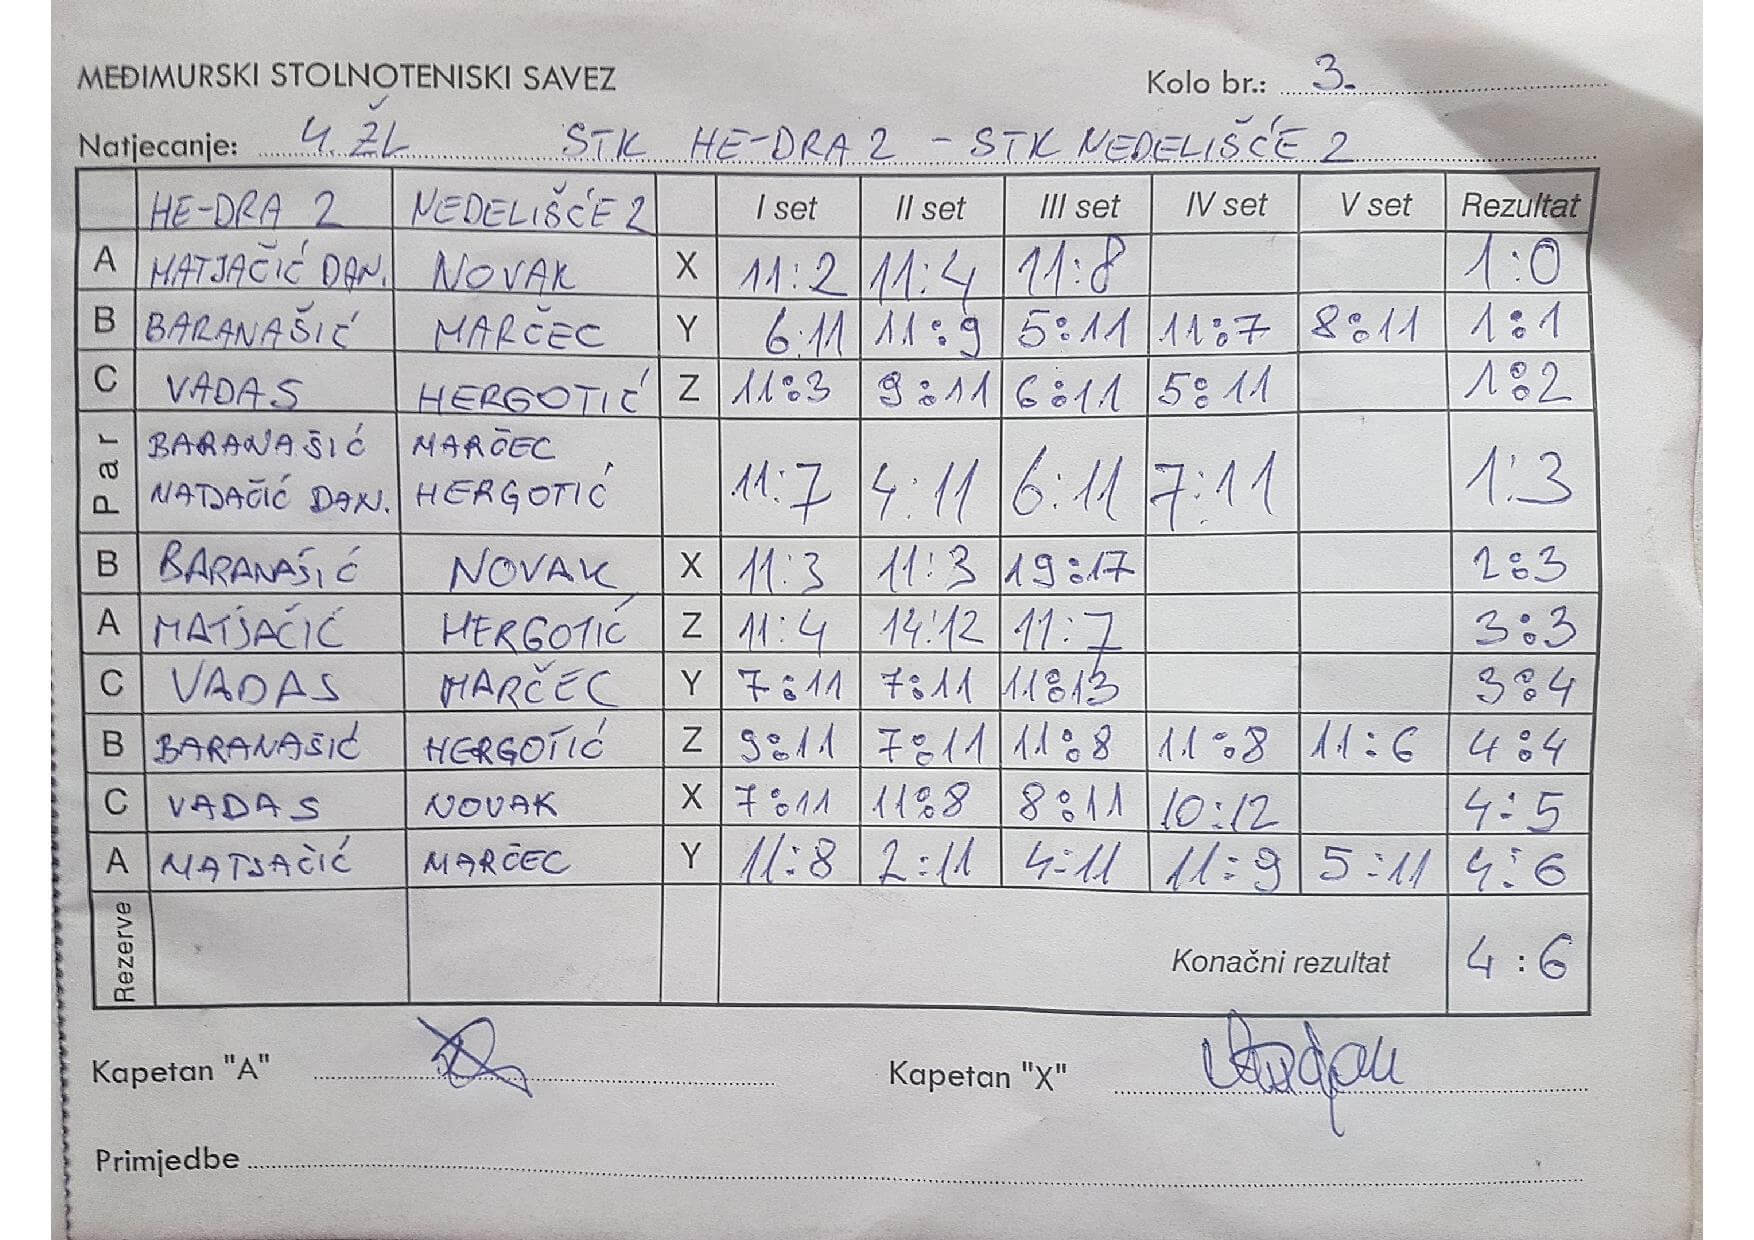 MEĐIMURSKI STOLNOTENISKI SAVEZ Kolo br.: 3.
Natjecanje: 4. ŽL STK HE-DRA 2 - STK NEDELIŠĆE 2
HE-DRA 2 NEDELIŠĆE 2 I set II set III set IV set V set Rezultat
A MATJAČIĆ DAN. NOVAK X 11:2 11:4 11:8 1:0
B BARANAŠIĆ MARČEC Y 6:11 11:9 5:11 11:7 8:11 1:1
C VADAS HERGOTIĆ Z 11:3 9:11 6:11 5:11 1:2
Par BARANAŠIĆ MARČEC
MATJAČIĆ DAN. HERGOTIĆ 11:7 4:11 6:11 7:11 1:3
B BARANAŠIĆ NOVAK X 11:3 11:3 19:17 2:3
A MATJAČIĆ HERGOTIĆ Z 11:4 14:12 11:7 3:3
C VADAS MARČEC Y 7:11 7:11 11:13 3:4
B BARANAŠIĆ HERGOTIĆ Z 9:11 7:11 11:8 11:8 11:6 4:4
C VADAS NOVAK X 7:11 11:8 8:11 10:12 4:5
A MATJAČIĆ MARČEC Y 11:8 2:11 4:11 11:9 5:11 4:6
Rezerve Konačni rezultat 4:6
Kapetan "A" Kapetan "X"
Primjedbe